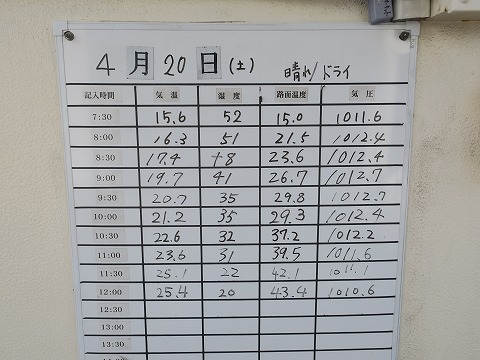 4月20日(土) 晴れ/ドライ
記入時間 気温 湿度 路面温度 気圧
7:30 15.6 52 15.0 1011.6
8:00 16.3 51 21.5 1012.4
8:30 17.4 48 23.6 1012.4
9:00 19.7 41 26.7 1012.7
9:30 20.7 35 29.8 1012.7
10:00 21.2 35 29.3 1012.4
10:30 22.6 32 37.2 1012.2
11:00 23.6 31 39.5 1011.6
11:30 25.1 22 42.1 1011.1
12:00 25.4 20 43.4 1010.6
12:30
13:00
13:30